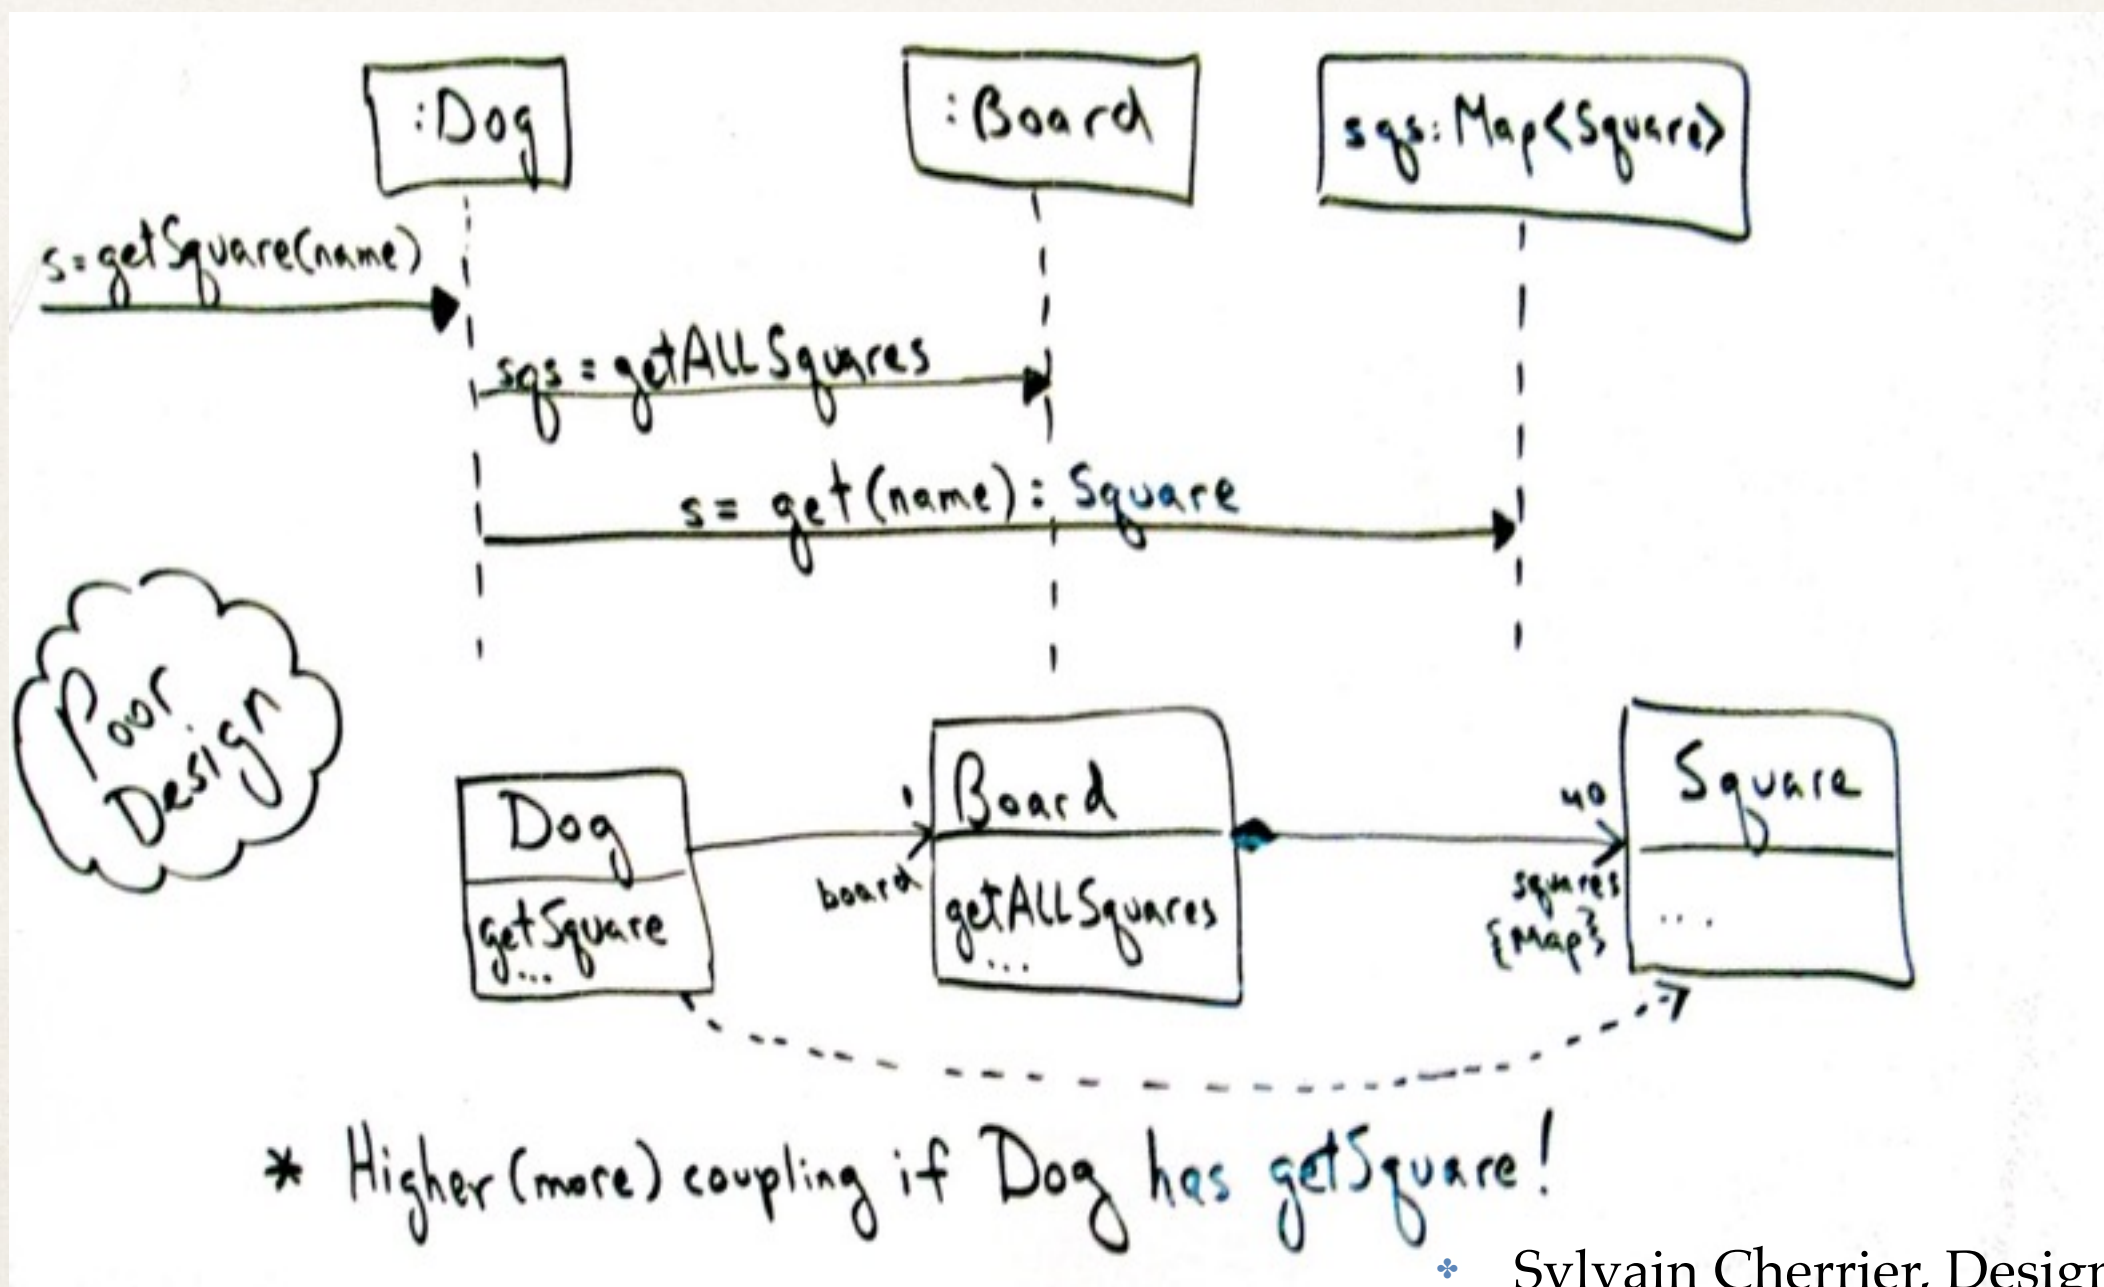 :Dog
:Board
sqs:Map<Square>
s=getSquare(name)
sqs = getALLSquares
s= get(name): Square
Poor
Design
Dog
getSquare
...
1
board
Board
getALLSquares
...
40
squares
{Map}
Square
...
* Higher (more) coupling if Dog has getSquare!
❖ Sylvain Cherrier, Design